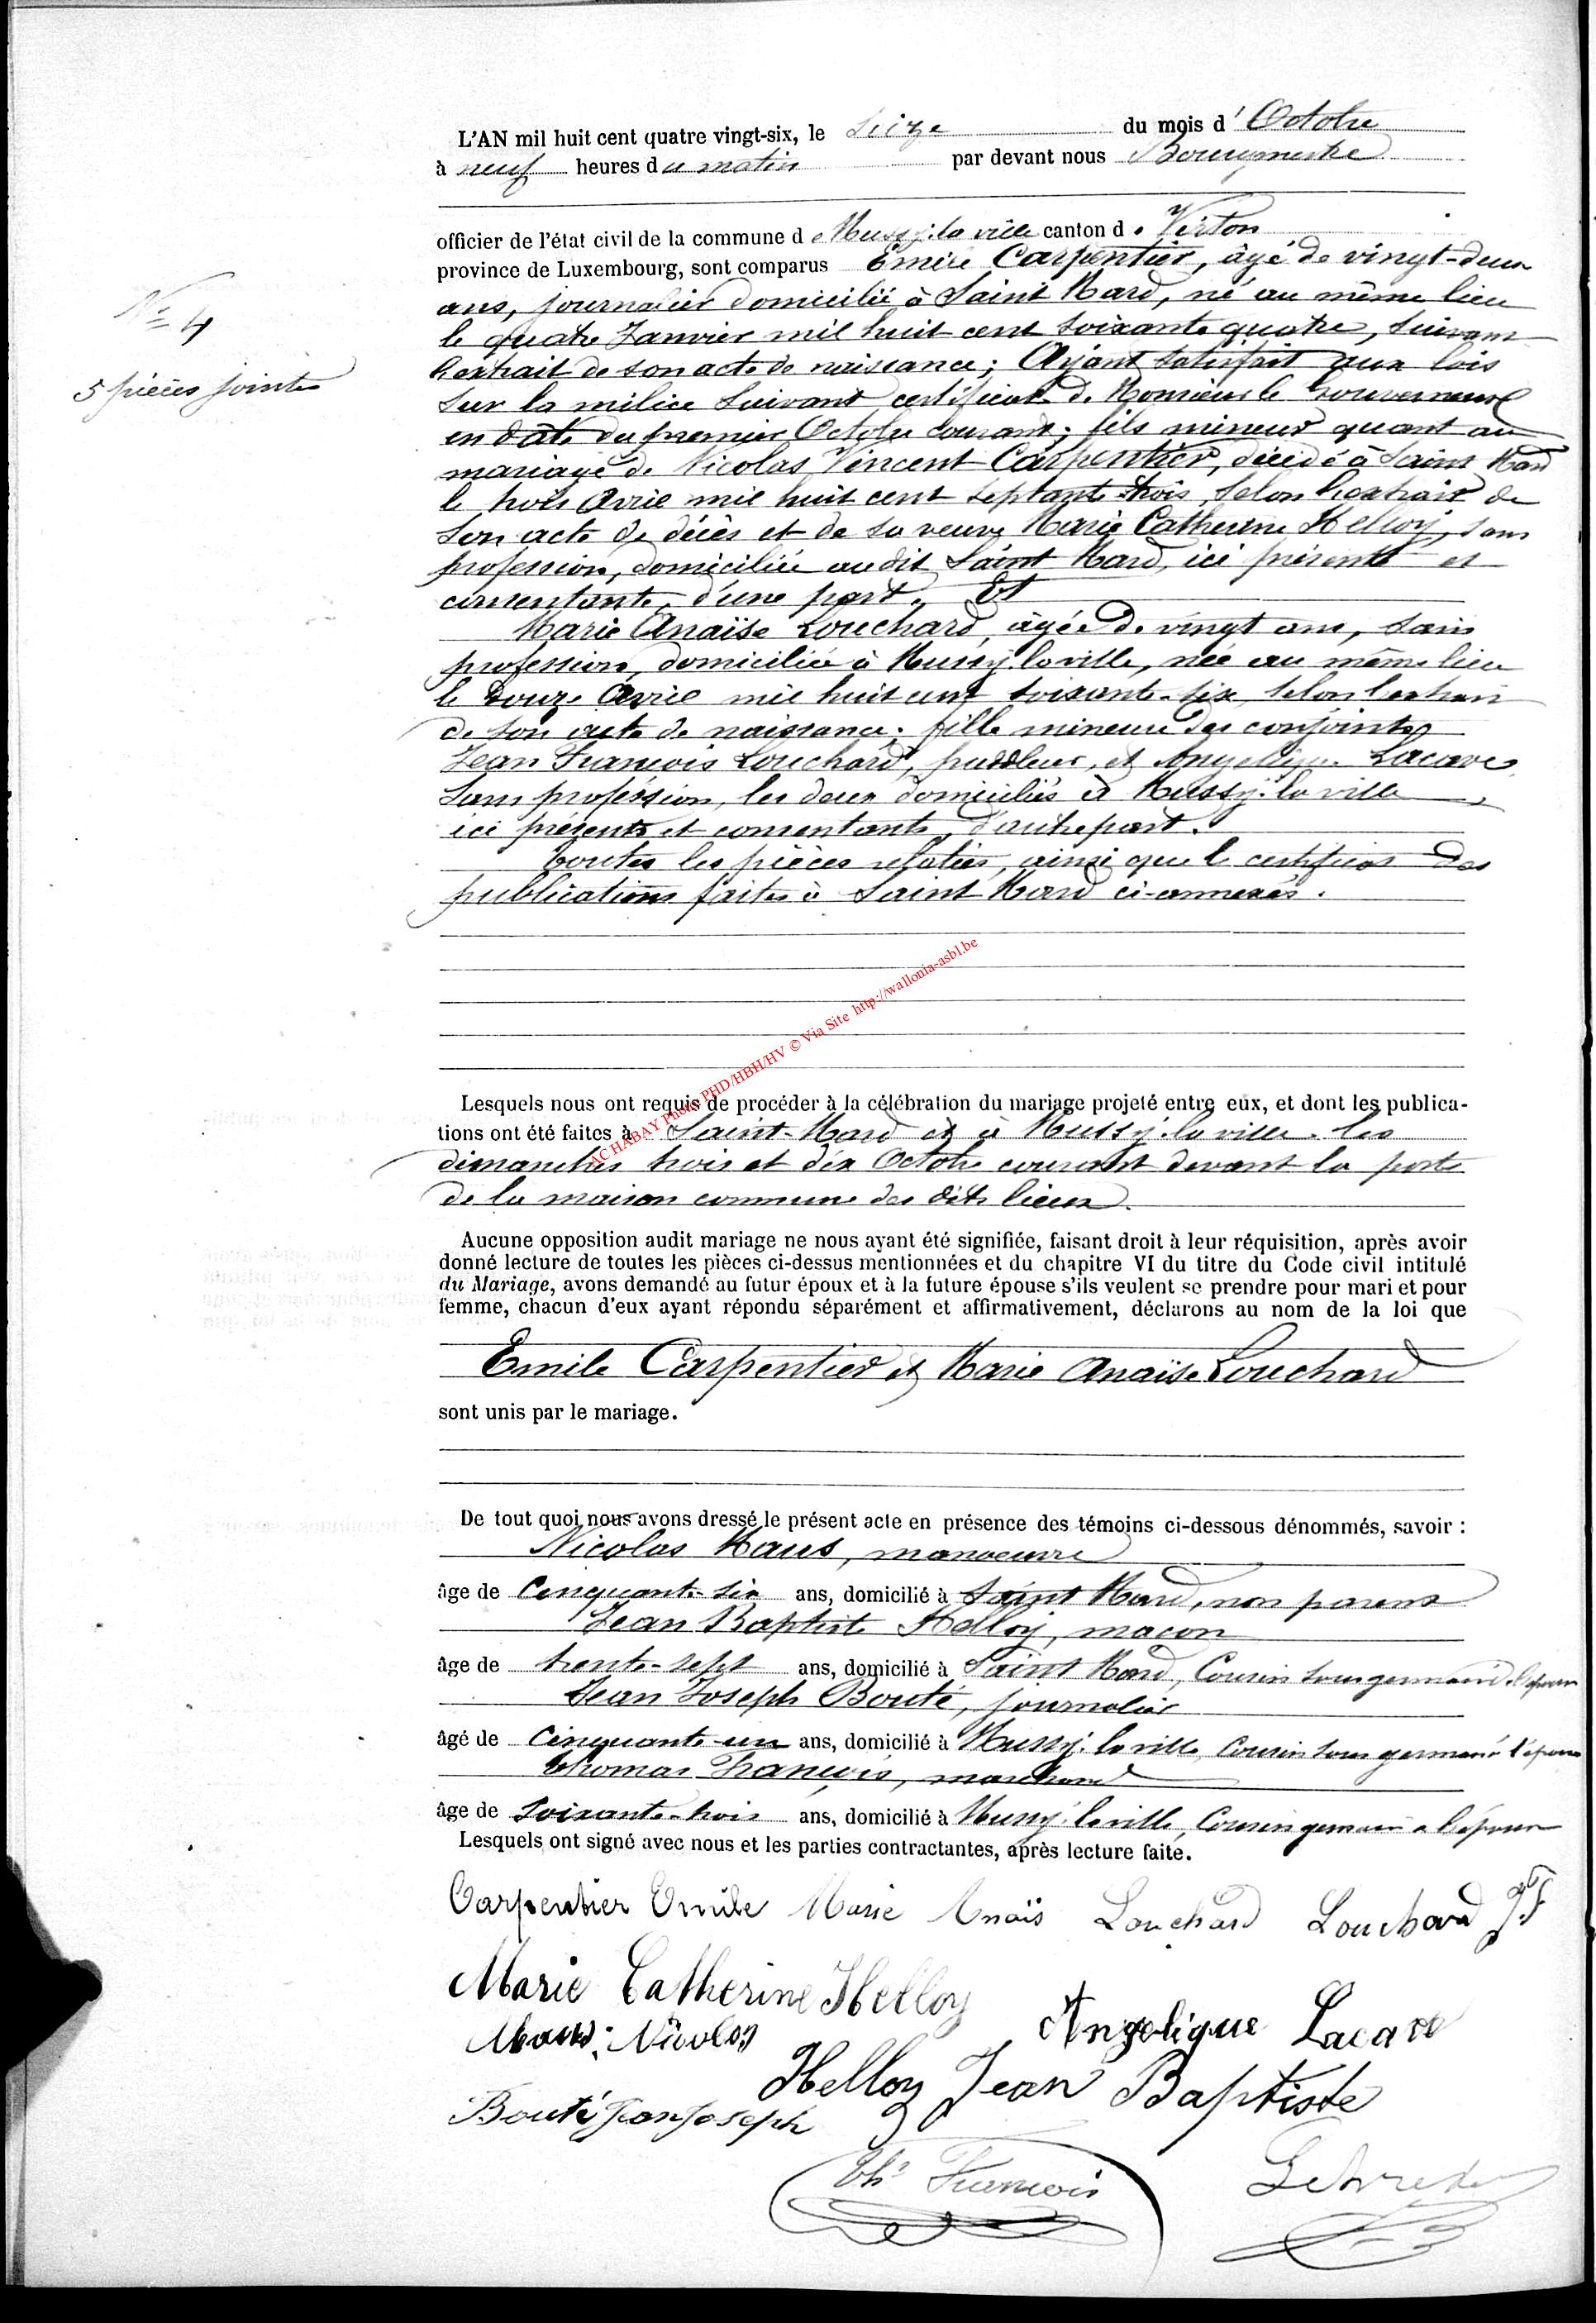 L'AN mil huit cent quatre vingt-six, le Seize du mois d'Octobre
à neuf heures du matin par devant nous Bourgmestre
officier de l'état civil de la commune de Mussy-la-ville canton de Virton
province de Luxembourg, sont comparus Emile Carpentier, âgé de vingt-deux
N° 4
ans, journalier domicilié à Saint Mard, né au même lieu
le quatre Janvier mil huit cent soixante quatre, suivant
l'extrait de son acte de naissance; Ayant satisfait aux lois
5 pièces jointes
sur la milice suivant certificat de Monsieur le Gouverneur
en date du premier Octobre courant; fils mineur quant au
mariage de Nicolas Vincent Carpentier, décédé à Saint Mard
le trois Avril mil huit cent septante-trois, selon l'extrait de
son acte de décès et de sa veuve Marie Catherine Helloy, sans
profession, domiciliée audit Saint Mard, ici présente et
consentante, d'une part. Et
Marie Anaïse Louchard, âgée de vingt ans, sans
profession, domiciliée à Mussy-la ville, née au même lieu
le douze Avril mil huit cent soixante-six, selon l'extrait
de son acte de naissance; fille mineure des conjoints
Jean François Louchard, puddleur, et Angelique Lacave
sans profession, les deux domiciliés à Mussy-la ville
ici présents et consentants, d'autre part.
Toutes les pièces relatées, ainsi que le certificat des
publications faites à Saint Mard ci-annexés.
AC HABAY Photo PHD/HBH/HV © Via Site http://wallonia-asbl.be
Lesquels nous ont requis de procéder à la célébration du mariage projeté entre eux, et dont les publica-
tions ont été faites à Saint-Mard et à Mussy-la ville les
dimanches trois et dix Octobre courant devant la porte
de la maison commune des dits lieux.
Aucune opposition audit mariage ne nous ayant été signifiée, faisant droit à leur réquisition, après avoir
donné lecture de toutes les pièces ci-dessus mentionnées et du chapitre VI du titre du Code civil intitulé
du Mariage, avons demandé au futur époux et à la future épouse s'ils veulent se prendre pour mari et pour
femme, chacun d'eux ayant répondu séparément et affirmativement, déclarons au nom de la loi que
Emile Carpentier et Marie Anaïse Louchard
sont unis par le mariage.
De tout quoi nous avons dressé le présent acte en présence des témoins ci-dessous dénommés, savoir :
Nicolas Maus, manoeuvre
âge de Cinquante-six ans, domicilié à Saint Mard, non parent
Jean Baptiste Helloy, maçon
âge de trente-sept ans, domicilié à Saint Mard, Cousin sous germain à l'époux
Jean Joseph Bouté, journalier
âgé de Cinquante-un ans, domicilié à Mussy-la ville, Cousin sous germain à l'épouse
Thomas François, marchand
âge de Soixante-trois ans, domicilié à Mussy-la ville, Cousin germain à l'époux
Lesquels ont signé avec nous et les parties contractantes, après lecture faite.
Carpentier Emile Marie Anaïs Louchard Louchard J.F
Marie Catherine Helloy
Angelique Lacave
Maus Nicolas
Helloy Jean Baptiste
Bouté Jean Joseph
Th. François